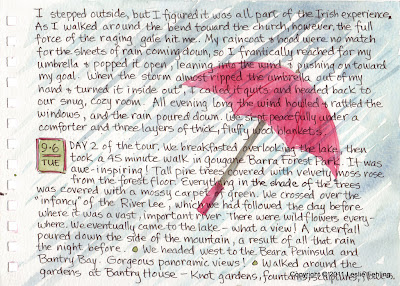 I stepped outside, but I figured it was all part of the Irish experience.
As I walked around the bend toward the church, however, the full
force of the raging gale hit me. My raincoat & hood were no match
for the sheets of rain coming down, so I frantically reached for my
umbrella & popped it open, leaning into the wind & pushing on toward
my goal. When the storm almost ripped the umbrella out of my
hand & turned it inside out, I called it quits and headed back to
our snug, cozy room. All evening long the wind howled & rattled the
windows, and the rain poured down. We slept peacefully under a
comforter and three layers of thick, fluffy wool blankets.
9-6
TUE
DAY 2 of the tour. We breakfasted overlooking the lake, then
took a 45 minute walk in gougane Barra Forest Park. It was
awe-inspiring! Tall pine trees covered with velvety moss rose
from the forest floor. Everything in the shade of the trees
was covered with a mossy carpet of green. We crossed over the
"infancy" of the River Lee, which we had followed the day before
where it was a vast, important river. There were wildflowers every-
where. We eventually came to the lake - what a view! A waterfall
poured down the side of the mountain, a result of all that rain
the night before. We headed west to the Beara Peninsula and
Bantry Bay. Gorgeous panoramic views! Walked around the
gardens at Bantry House - Knot gardens, fountains, sculptures,
Copyright ©2011 Leslie Fehling